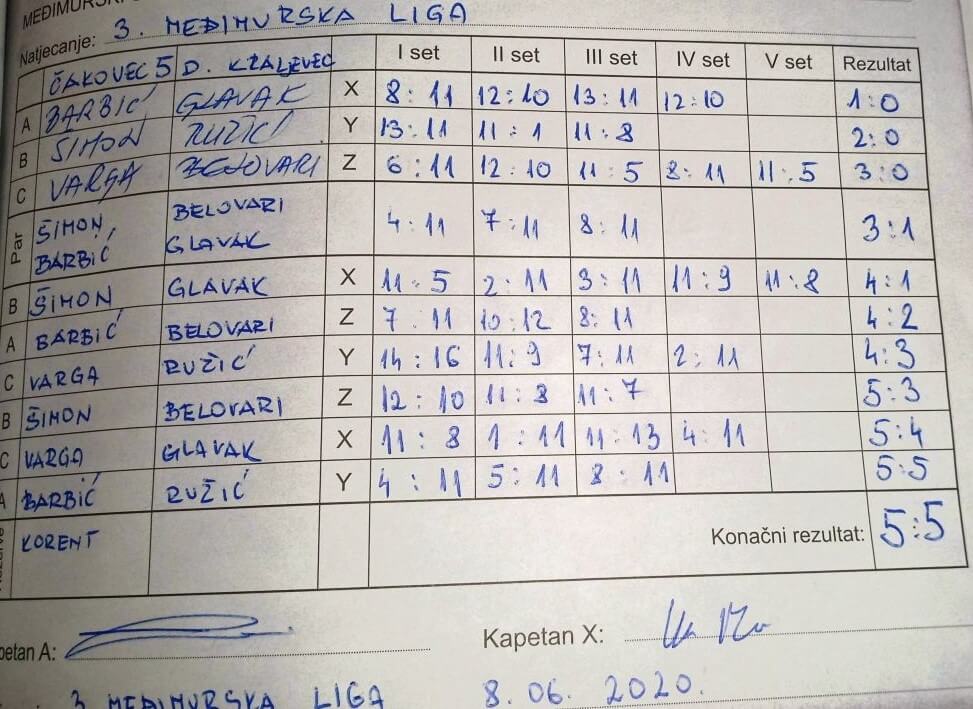 MEĐIMURS
Natjecanje: 3. MEĐIMURSKA LIGA
ČAKOVEC 5 D. KRALJEVEC I set II set III set IV set V set Rezultat
A BARBIĆ GLAVAK X 8:11 12:10 13:11 12:10 1:0
B ŠIMON RUŽIĆ Y 13:11 11:1 11:8 2:0
C VARGA BELOVARI Z 6:11 12:10 11:5 8:11 11:5 3:0
Par ŠIMON BARBIĆ BELOVARI GLAVAK 4:11 7:11 8:11 3:1
B ŠIMON GLAVAK X 11:5 2:11 3:11 11:9 11:8 4:1
A BARBIĆ BELOVARI Z 7:11 10:12 8:11 4:2
C VARGA RUŽIĆ Y 14:16 11:9 7:11 2:11 4:3
B ŠIMON BELOVARI Z 12:10 11:8 11:7 5:3
C VARGA GLAVAK X 11:8 1:11 11:13 4:11 5:4
A BARBIĆ RUŽIĆ Y 4:11 5:11 8:11 5:5
KORENT Konačni rezultat: 5:5
petan A: Kapetan X:
3. MEĐIMURSKA LIGA 8.06.2020.